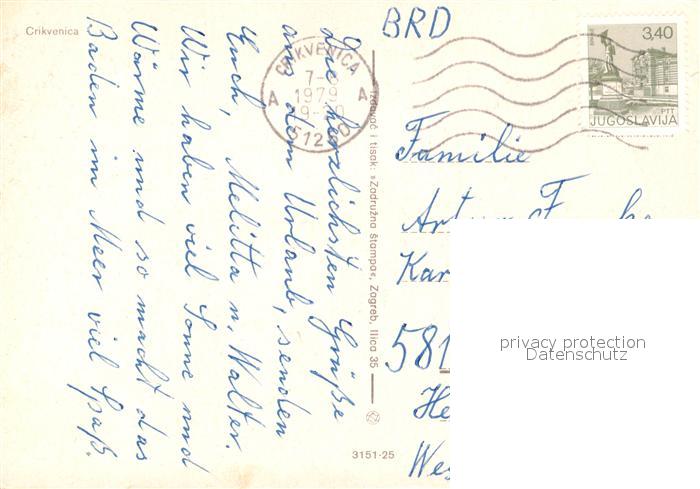 Crikvenica
Die herzlichsten Grüße
aus dem Urlaub, senden
Euch, Melitta u. Walter.
Wir haben viel Sonne und
Wärme und so macht das
Baden im Meer viel Spaß.
CRIKVENICA
7-8
1979
A A
51260
Izdavač i tisak: »Zadružna štampa«, Zagreb, Ilica 35
3151-25
BRD
3,40
PTT
JUGOSLAVIJA
Familie
Kar
581
He
Wes
privacy protection
Datenschutz